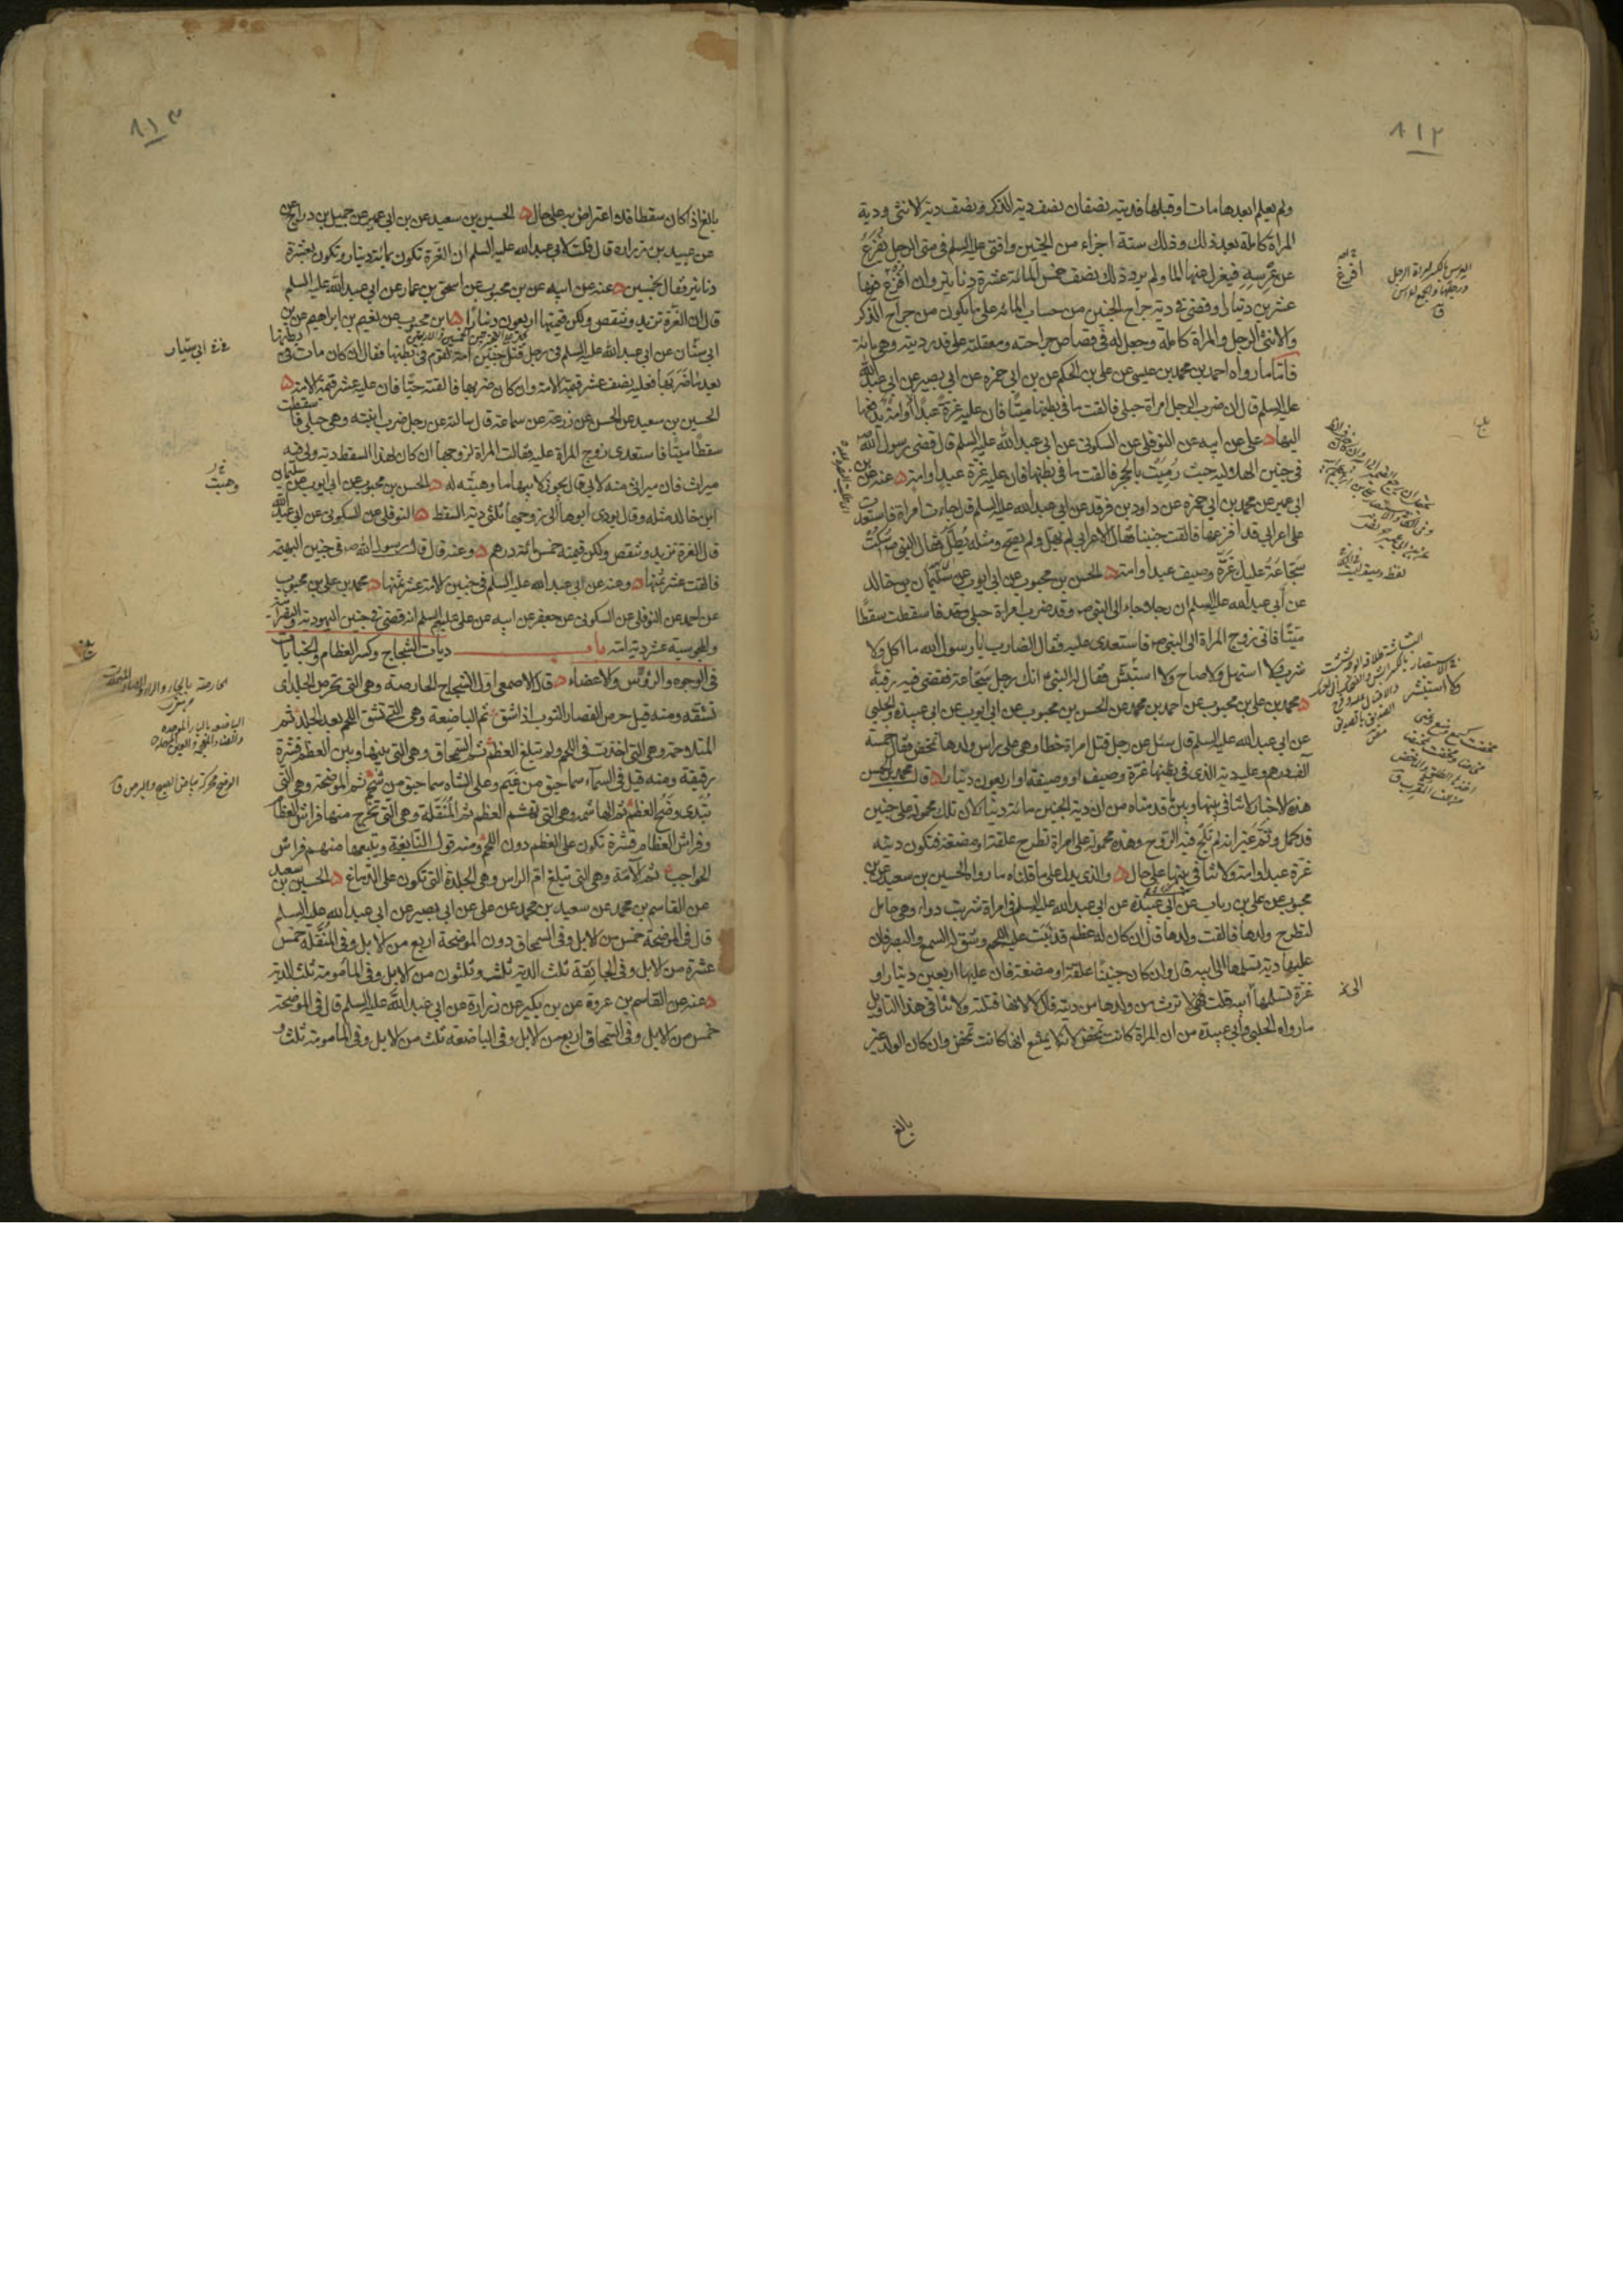 ٨١٢
ولم يعلم ابعدها مات او قبلها فديته نصفان نصف دية الذكر ونصف دية الانثى ودية
المراة كاملة بعد ذلك وذلك ستة اجزاء من الجنين وافتى عليه السلم في منى الرجل يفزع
عن عرسه فيعزل عنها الماء ولم يرد ذلك نصف خمس المائة عشرة دنانير وان افرغ فيها
عشرين دينارا وقضى في دية جراح الجنين من حساب المائة على ما يكون من جراح الذكر
والانثى الرجل والمراة كاملة وجعل له في قصاص جراحته ومعقلته على قدر ديته وهي مائة
فاما ما رواه احمد بن محمد بن عيسى عن علي بن الحكم عن بن ابي حمزه عن ابي بصير عن ابي عبد الله
عليه السلم قال ان ضرب الرجل امراة حبلى فالقت ما في بطنها ميتا فان عليه غرة عبدا او امة يدفعها
اليها علي عن ابيه عن النوفلي عن السكوني عن ابي عبد الله عليه السلم قال قضى رسول الله ص
في جنين الهلالية حيث رميت بالحجر فالقت ما في بطنها فان عليه غرة عبد او امة عنه عن بن
ابي عمير عن محمد بن ابي حمزه عن داود بن فرقد عن ابي عبد الله عليه السلم قال جاءت امراة فاستعدت
على اعرابي قد افزعها فالقت جنينا فقال الاعرابي لم يهل ولم يصح ومثله يطل فقال النبي ص اسكت
سجاعة عليك غرة وصيف عبد او امة الحسن بن محبوب عن ابي ايوب عن سليمان بن خالد
عن ابي عبد الله عليه السلم ان رجلا جاء الى النبي ص وقد ضرب امراة حبلى فاسقطت سقطا
ميتا فاتى زوج المراة الى النبي ص فاستعدى عليه فقال الضارب يا رسول الله ما اكل ولا
شرب ولا استهل ولا صاح ولا استبش فقال له النبي ص انك رجل سجاعة فقضى فيه رقبة
محمد بن علي بن محبوب عن احمد بن محمد عن الحسن بن محبوب عن ابي ايوب عن ابي عبيدة والحلبي
عن ابي عبد الله عليه السلم قال سئل عن رجل قتل امراة خطا وهي على راس ولدها تمخض فقال خمسة
الف درهم وعليه دية الذي في بطنها غرة وصيف او وصيفة او اربعون دينارا قال محمد بن الحسن
هذه الاخبار لا تنافي بينها وبين ما قدمناه من ان دية الجنين مائة دينار لان تلك محمولة على جنين
قد كمل وتم غير انه لم تلج فيه الروح وهذه محمولة على امراة تطرح علقة او مضغة فتكون ديته
غرة عبد او امة ولا تنافي بينها على حال والذي يدل على ما قلناه ما رواه الحسين بن سعيد عن بن
محبوب عن علي بن رياب عن ابي عبيدة عن ابي عبد الله عليه السلم في امراة شربت دواء وهي حامل
لتطرح ولدها فالقت ولدها قال ان كان له عظم قد نبت عليه اللحم وشق له السمع والبصر فان
عليها دية تسلمها الى ابيه قال وان كان جنينا علقة او مضغة فان عليها اربعين دينارا او
غرة تسلمها ابيه قلت فهي لا ترث من ولدها من ديته قال لا لانها قتلته ولا تنافي هذا التاويل
ما رواه الحلبي وابي عبيدة من ان المراة كانت تمخض لانه لا يمتنع انها كانت تمخض وان كان الولد غير
بالغ
افرغ
العرس بالكسر امراة الرجل
ولا استبش
الى
٨١٣
بالغ اذ كان سقطا فلا اعتراض به على حال الحسين بن سعيد عن بن ابي عمير عن جميل بن دراج عن
عن عبيد بن زراره قال قلت لابي عبد الله عليه السلم ان الغرة تكون بمائة دينار وتكون بعشرة
دنانير فقال بخمسين عنه عن ابيه عن بن محبوب عن اسحق بن عمار عن ابي عبد الله عليه السلم
قال ان الغرة تزيد وتنقص ولكن قيمتها اربعون دينارا بن محبوب عن نعيم بن ابراهيم عن بن
ابي سنان عن ابي عبد الله عليه السلم في رجل قتل جنين امة لقوم في بطنها فقال ان كان مات في بطنها
بعد ما ضربها فعليه نصف عشر قيمة الامة وان كان ضربها فالقته حيا فان عليه عشر قيمة الامة
الحسين بن سعيد عن الحسن عن زرعة عن سماعة قال سالته عن رجل ضرب ابنته وهي حبلى فاسقطت
سقطا ميتا فاستعدى زوج المراة عليه فقالت المراة لزوجها ان كان لهذا السقط دية ولي فيه
ميراث فان ميراثي منه لابي قال يجوز لابيها ما وهبته له الحسن بن محبوب عن ابي ايوب عن سليمان
ابن خالد مثله وقال يودى ابوها الى زوجها ثلثى دية السقط النوفلي عن السكوني عن ابي عبد الله
قال الغرة تزيد وتنقص ولكن قيمته خمس مائة درهم وعنه قال قال رسول الله ص في جنين البهيمة
فالقت عشر ثمنها وعنه عن ابي عبد الله عليه السلم في جنين الامة عشر ثمنها محمد بن علي بن محبوب
عن احمد عن النوفلي عن السكوني عن جعفر عن ابيه عن علي عليهم السلم انه قضى في جنين اليهودية والنصرانية
والمجوسية عشر دية امه باب ديات الشجاج وكسر العظام والجنايات
في الوجوه والرؤس والاعضاء قال الاصمعي اول الشجاج الحارصة وهي التي تحرص الجلد اى
تشقه ومنه قيل حرص القصار الثوب اذا شق ثم الباضعة وهي التي تشق اللحم بعد الجلد ثم
المتلاحمة وهي التي اخذت في اللحم ولم تبلغ العظم ثم السمحاق وهي التي بينها وبين العظم قشرة
رقيقة ومنه قيل في السماء سماحيق من غيم وعلى الشاه سماحيق من شحم ثم الموضحة وهي التي
تبدى وضح العظم ثم الهاشمة وهي التي تهشم العظم ثم المنقلة وهي التي تخرج منها فراش العظام
وفراش العظام قشرة تكون على العظم دون اللحم ومنه قول النابغة ويتبعها منهم فراش
الحواجب ثم الآمة وهي التي تبلغ ام الراس وهي الجلدة التي تكون على الدماغ الحسين بن سعيد
عن القاسم بن محمد عن سعيد بن محمد عن علي عن ابي بصير عن ابي عبد الله عليه السلم
قال في الموضحة خمس من الابل وفي السمحاق دون الموضحة اربع من الابل وفي المنقلة خمس
عشرة من الابل وفي الجائفة ثلث الدية ثلث وثلثون من الابل وفي المأمومة ثلث الدية
عنه عن القاسم بن عروة عن بن بكير عن زرارة عن ابي عبد الله عليه السلم قال في الموضحة
خمس من الابل وفي السمحاق اربع من الابل وفي الباضعة ثلث من الابل وفي المأمومة ثلث و
ابي سيار
وهبت
الحارصة بالحاء والراء والصاد المهملات
الباضعه بالباء الموحده
والضاد المعجمة والعين المهملة
الوضح محركة بياض الصبح والبرص ق